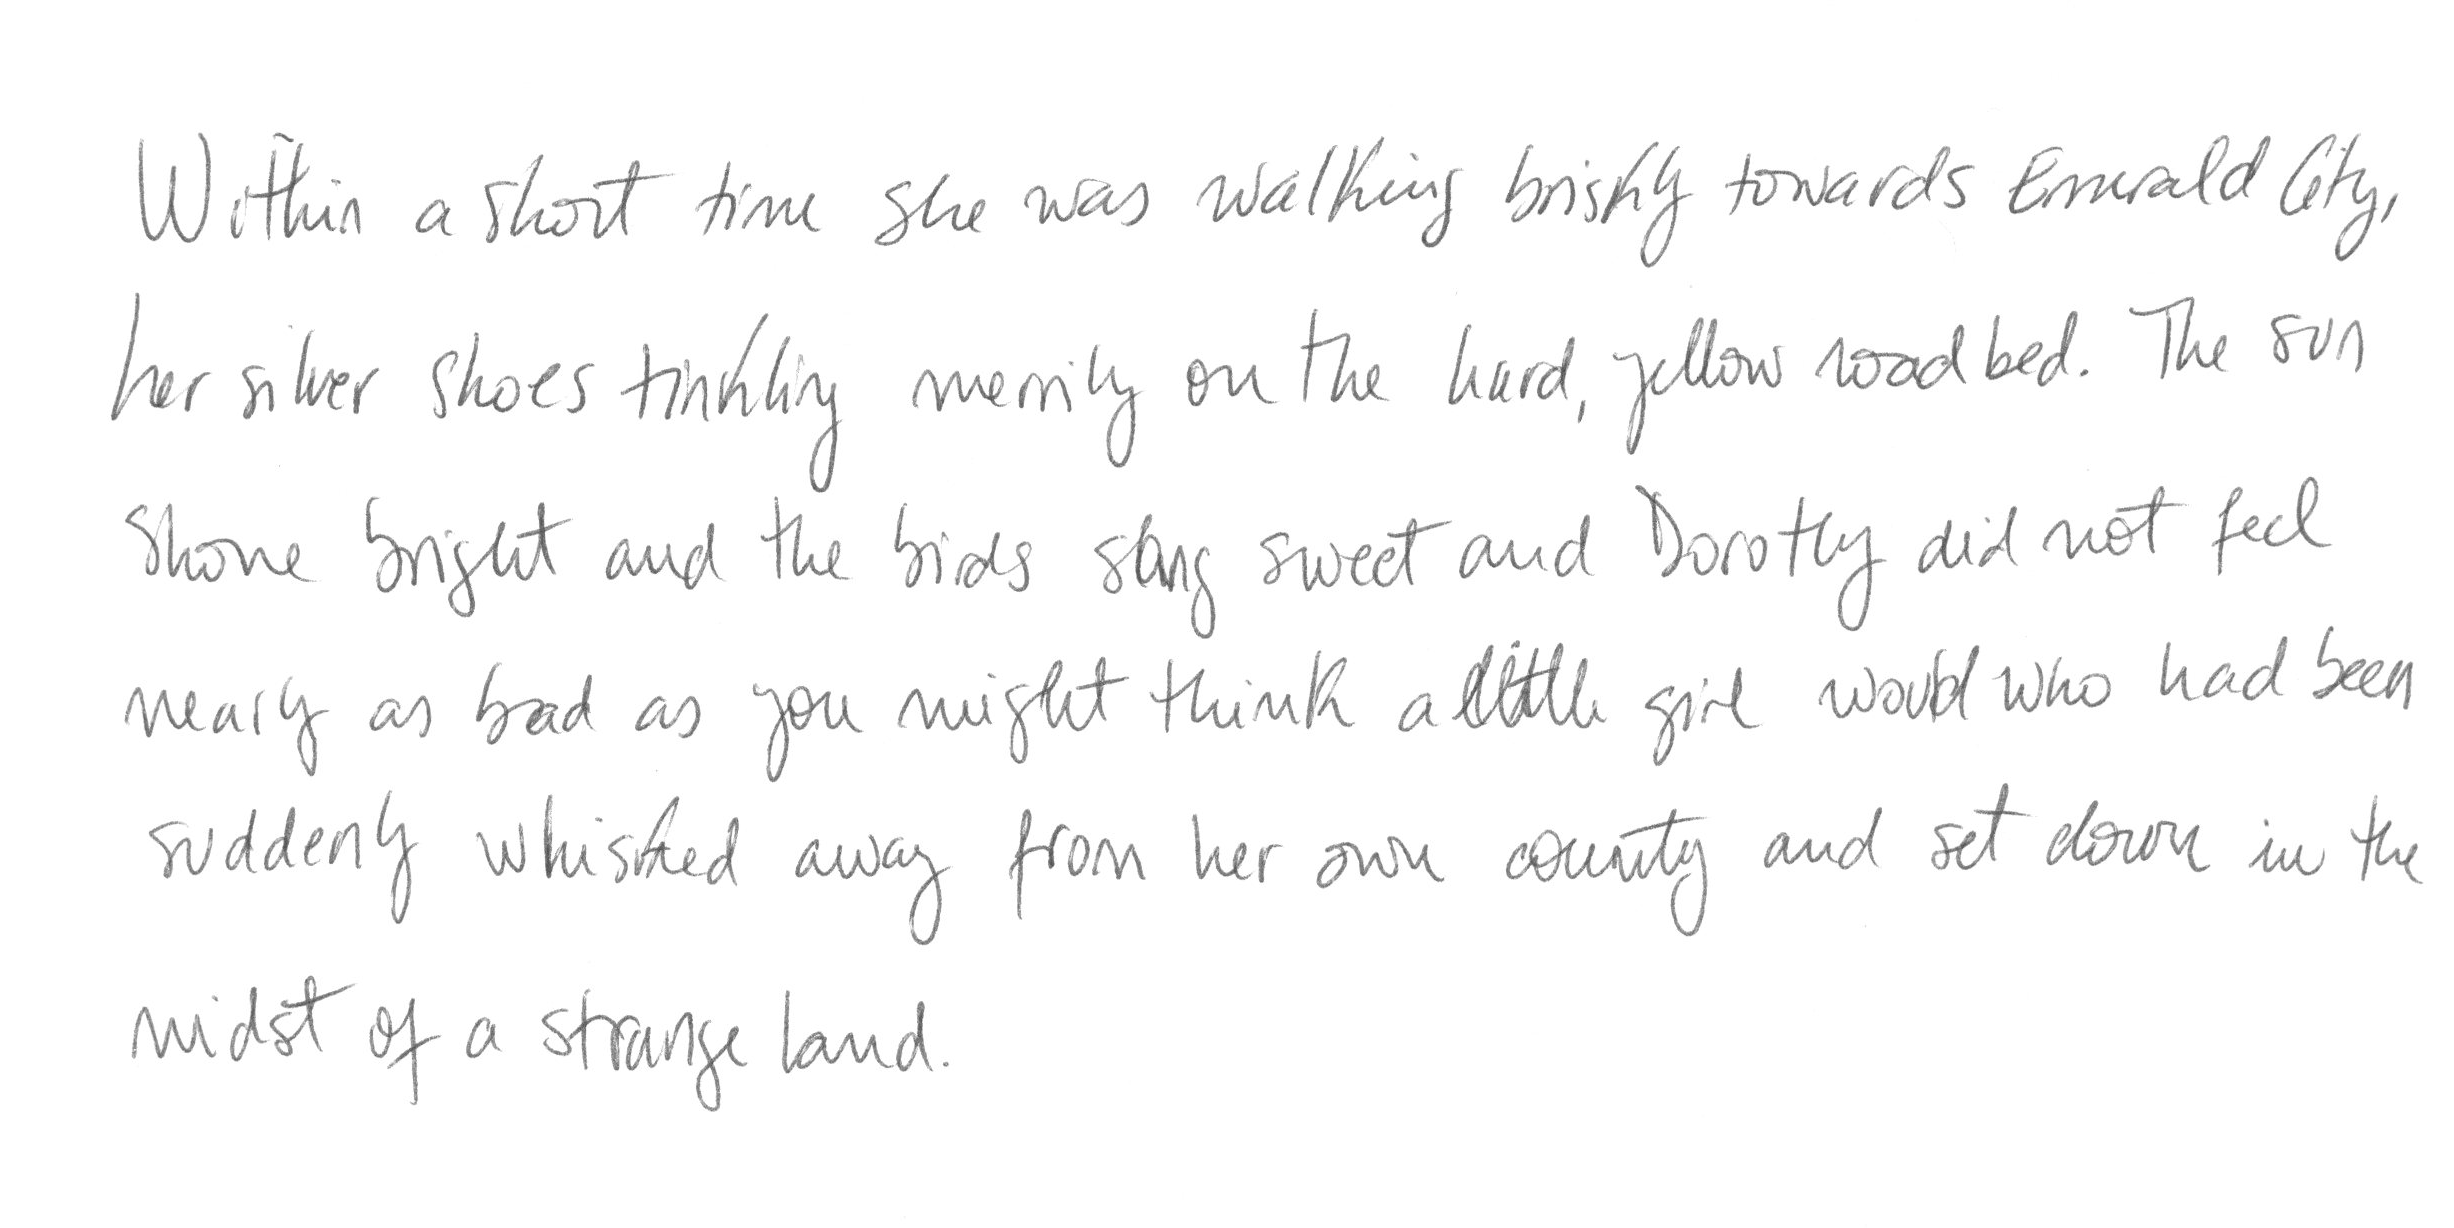 Within a short time she was walking briskly towards Emerald City,
her silver shoes tinkling merrily on the hard, yellow roadbed. The sun
shone bright and the birds sang sweet and Dorothy did not feel
nearly as bad as you might think a little girl would who had been
suddenly whisked away from her own county and set down in the
midst of a strange land.